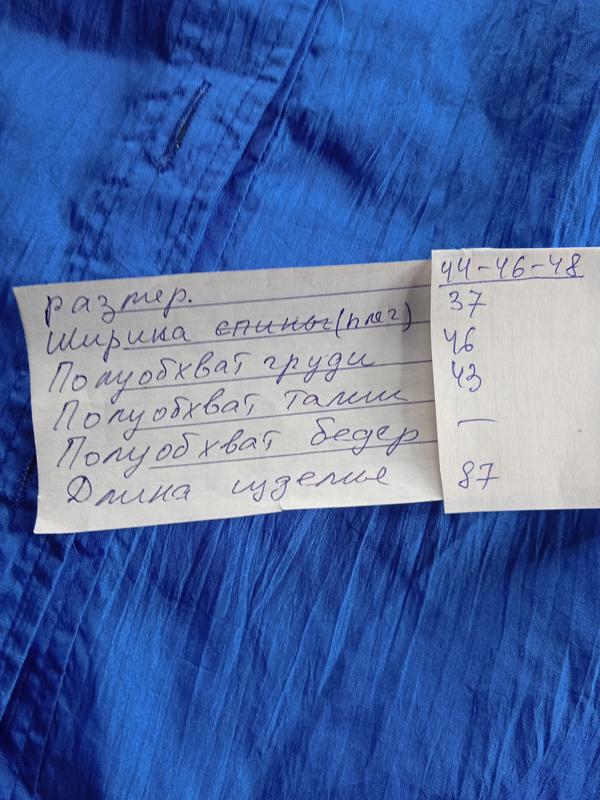 размер. 44-46-48
Ширина спины (плеч) 37
Полуобхват груди 46
Полуобхват талии 43
Полуобхват бедер —
Длина изделие 87